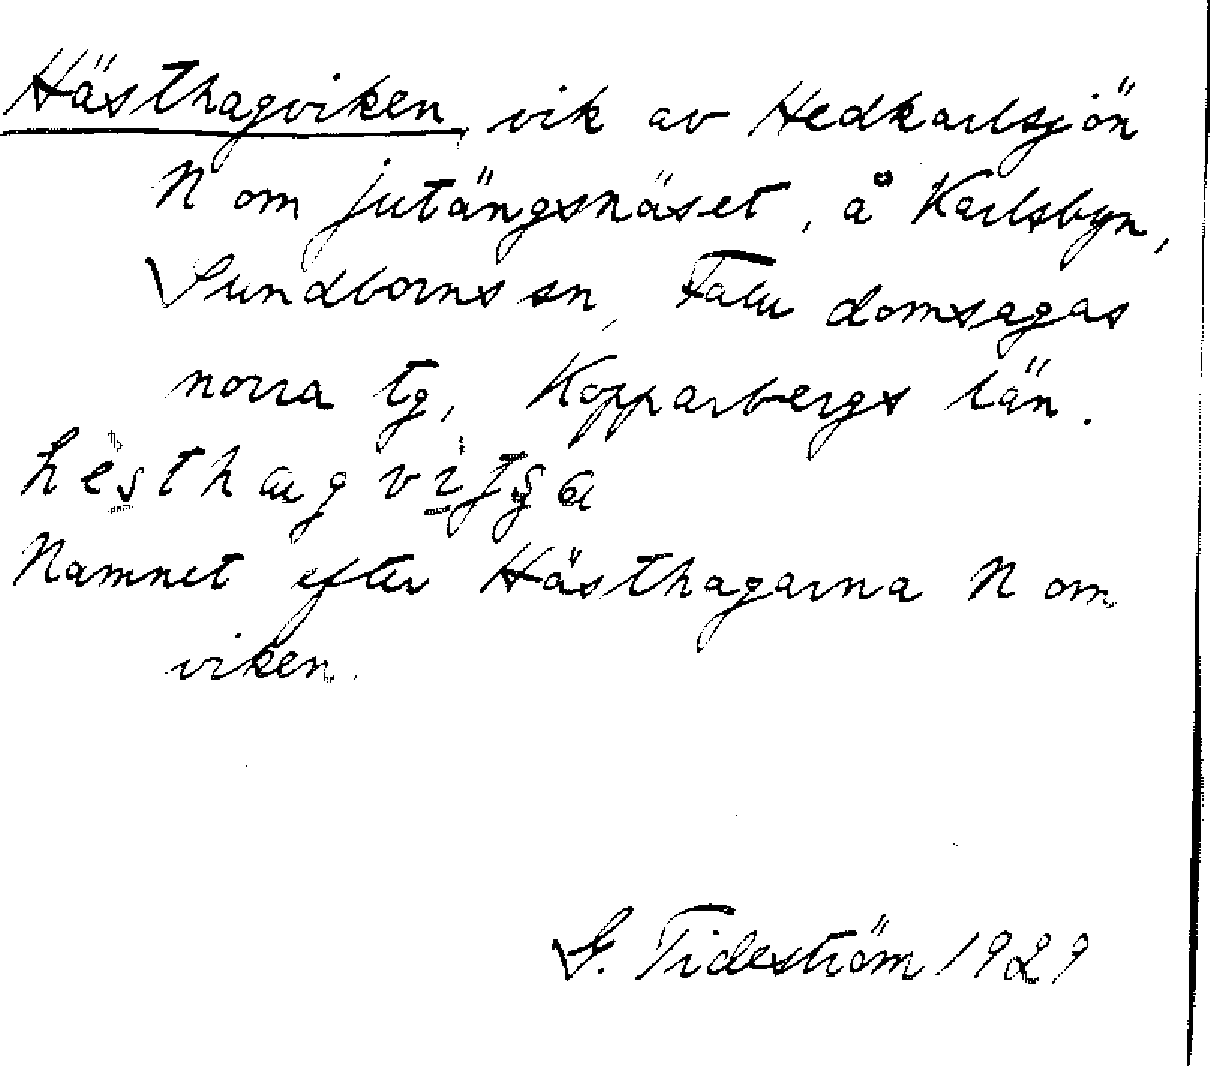 Hästhagviken, vik av Hedkarlsjön
N om Jutängsnäset, å Karlsbyn,
Sundborns sn, Falu domsagas
norra tg, Kopparbergs län.
Namnet efter Hästhagarna N om
viken.
G. Tideström 1929